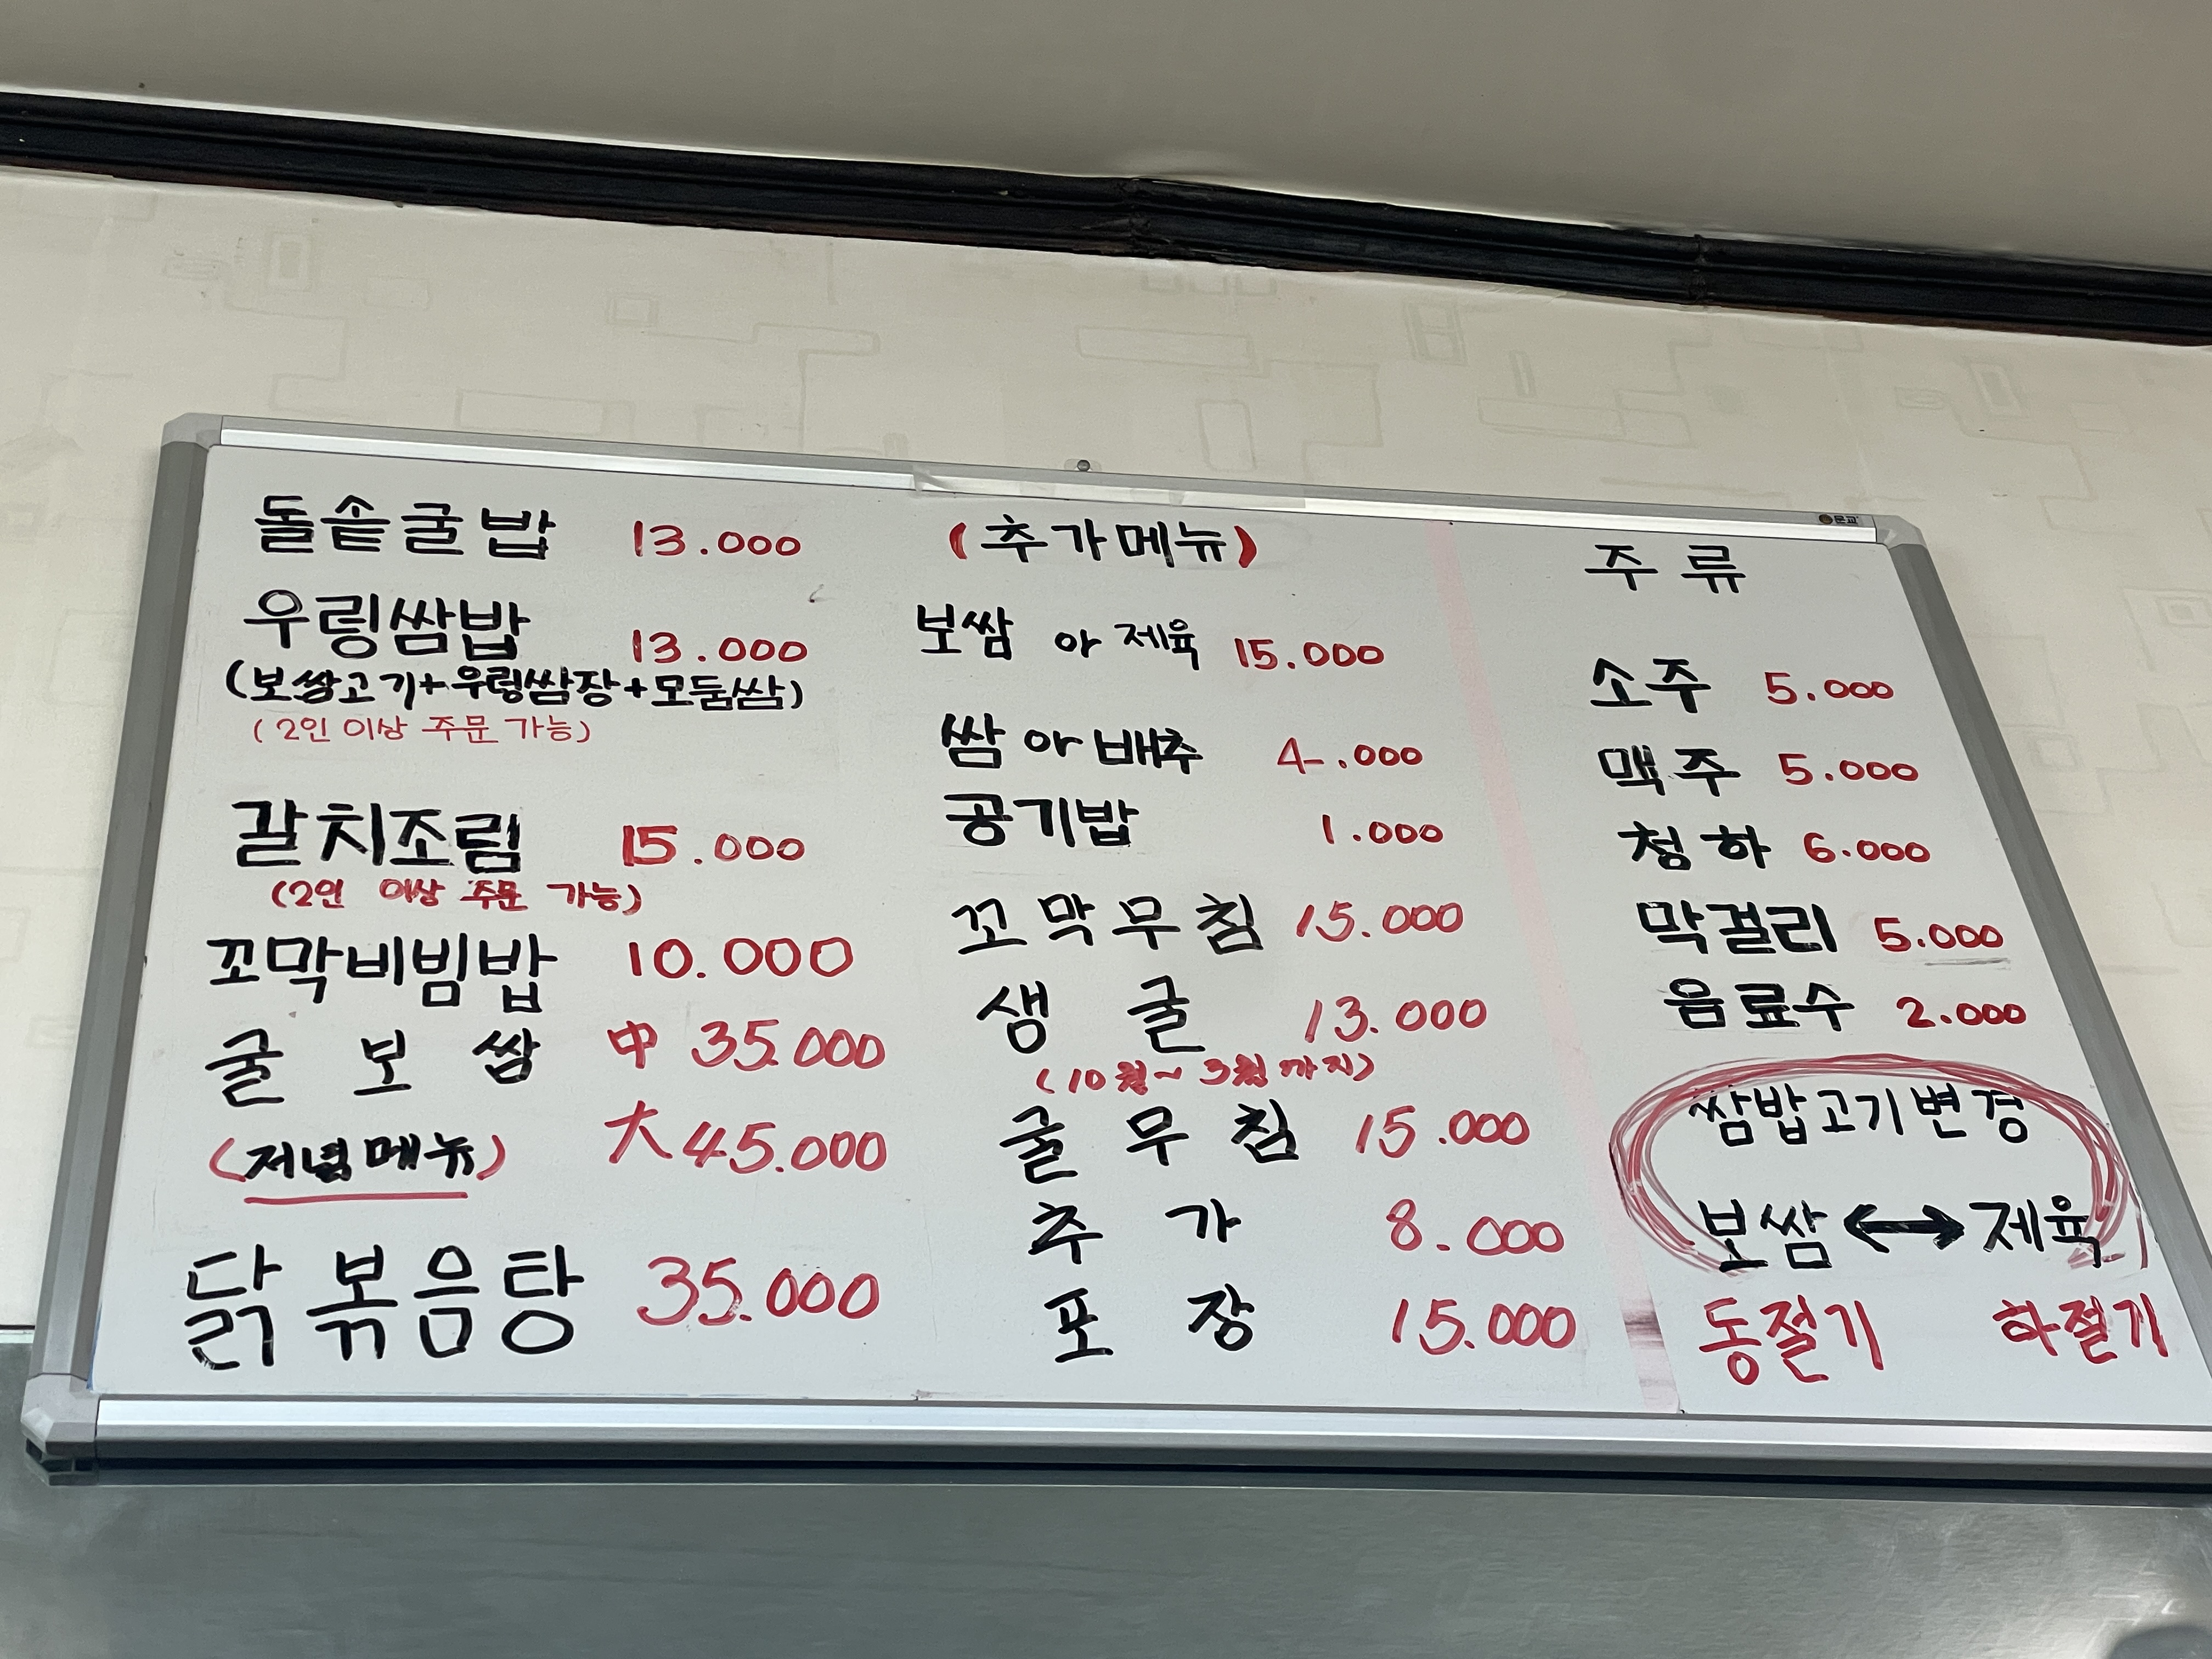 문교
돌솥굴밥 13.000
우렁쌈밥 13.000
(보쌈고기+우렁쌈장+모둠쌈)
(2인 이상 주문 가능)
갈치조림 15.000
(2인 이상 주문 가능)
꼬막비빔밥 10.000
굴보쌈 中 35.000
(저녁메뉴) 大 45.000
닭볶음탕 35.000
(추가메뉴)
보쌈 or 제육 15.000
쌈 or 배추 4.000
공기밥 1.000
꼬막무침 15.000
생굴 13.000
(10월~3월까지)
굴무침 15.000
추가 8.000
포장 15.000
주류
소주 5.000
맥주 5.000
청하 6.000
막걸리 5.000
음료수 2.000
쌈밥고기변경
보쌈 ↔ 제육
동절기 하절기